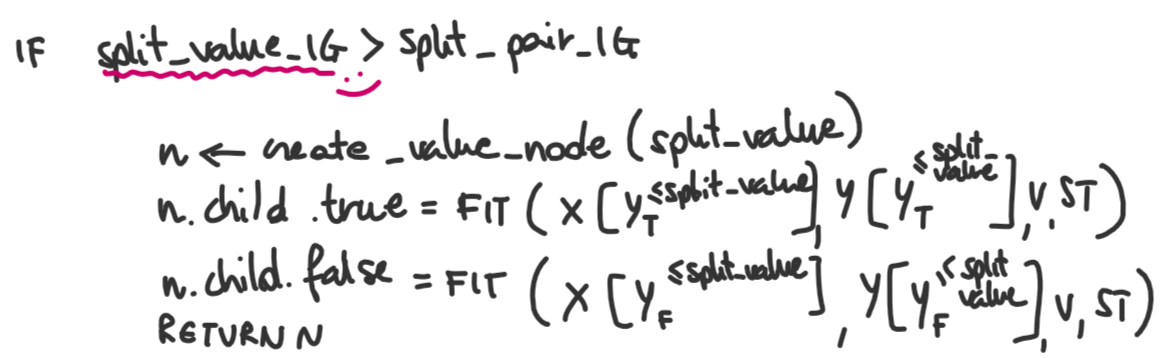 IF split_value_IG > split_pair_IG
n ← create_value_node (split_value)
n.child.true = FIT (X [Y_T^≤split-value], Y [Y_T^≤split-value], V, ST)
n.child.false = FIT (X [Y_F^≤split-value], Y [Y_F^≤split value], V, ST)
RETURN N